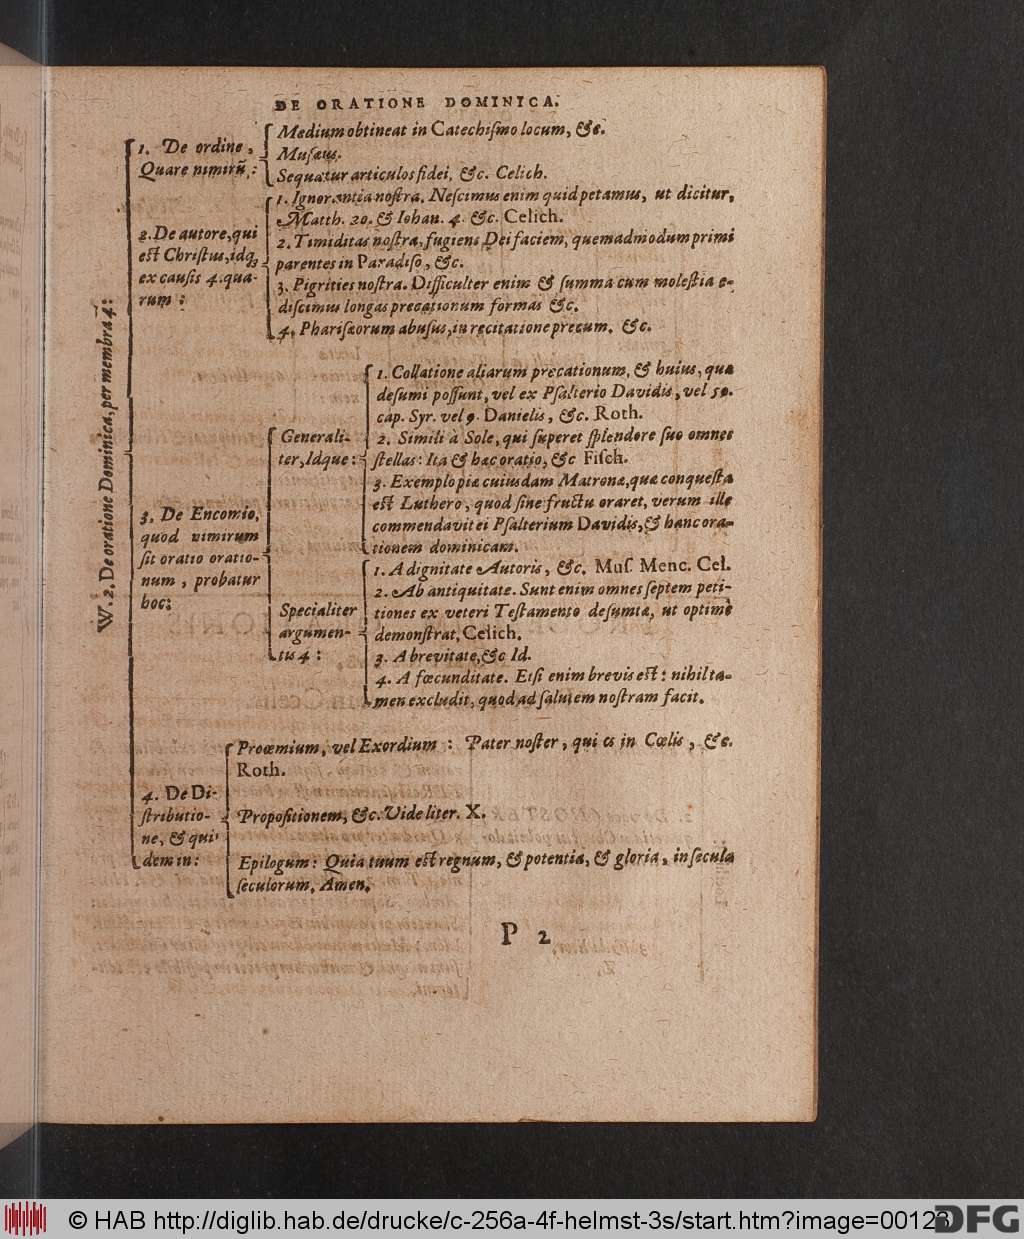 DE ORATIONE DOMINICA.
W. 2. De oratione Dominica, per membra 4:
1. De ordine,
Quare nimirũ,:
Medium obtineat in Catechismo locum, &c.
Musæus.
Sequatur articulos fidei, &c. Celich.
2. De autore, qui
est Christus, idq;
ex causis 4. qua-
rum :
1. Ignorantia nostra. Nescimus enim quid petamus, ut dicitur,
Matth. 20. & Iohan. 4. &c. Celich.
2. Timiditas nostra, fugiens Dei faciem, quemadmodum primi
parentes in Paradiso, &c.
3. Pigrities nostra. Difficulter enim & summa cum molestia e-
discimus longas precationum formas &c.
4. Pharisæorum abusus, in recitatione precum. &c.
3. De Encomio,
quod nimirum
sit oratio oratio-
num, probatur
hoc:
Generali-
ter, Idque:
1. Collatione aliarum precationum, & huius, quæ
desumi possunt, vel ex Psalterio Davidis, vel 50.
cap. Syr. vel 9. Danielis, &c. Roth.
2. Simili à Sole, qui superet splendore suo omnes
stellas: Ita & hæc oratio, &c Fisch.
3. Exemplo piæ cuiusdam Matronæ, quæ conquesta
est Luthero, quod sine fructu oraret, verum ille
commendavit ei Psalterium Davidis, & hanc ora-
tionem dominicam.
Specialiter
argumen-
tis 4 :
1. A dignitate Autoris, &c. Mus. Menc. Cel.
2. Ab antiquitate. Sunt enim omnes septem peti-
tiones ex veteri Testamento desumtæ, ut optimè
demonstrat, Celich.
3. A brevitate, &c Id.
4. A fœcunditate. Etsi enim brevis est: nihil ta-
men excludit, quod ad salutem nostram facit.
4. De Di-
stributio-
ne, & qui-
dem in:
Proœmium, vel Exordium : Pater noster, qui es in Cœlis, &c.
Roth.
Propositionem, &c. Vide liter. X.
Epilogum: Quia tuum est regnum, & potentia, & gloria, in secula
seculorum, Amen.
P 2
© HAB http://diglib.hab.de/drucke/c-256a-4f-helmst-3s/start.htm?image=00123
DFG